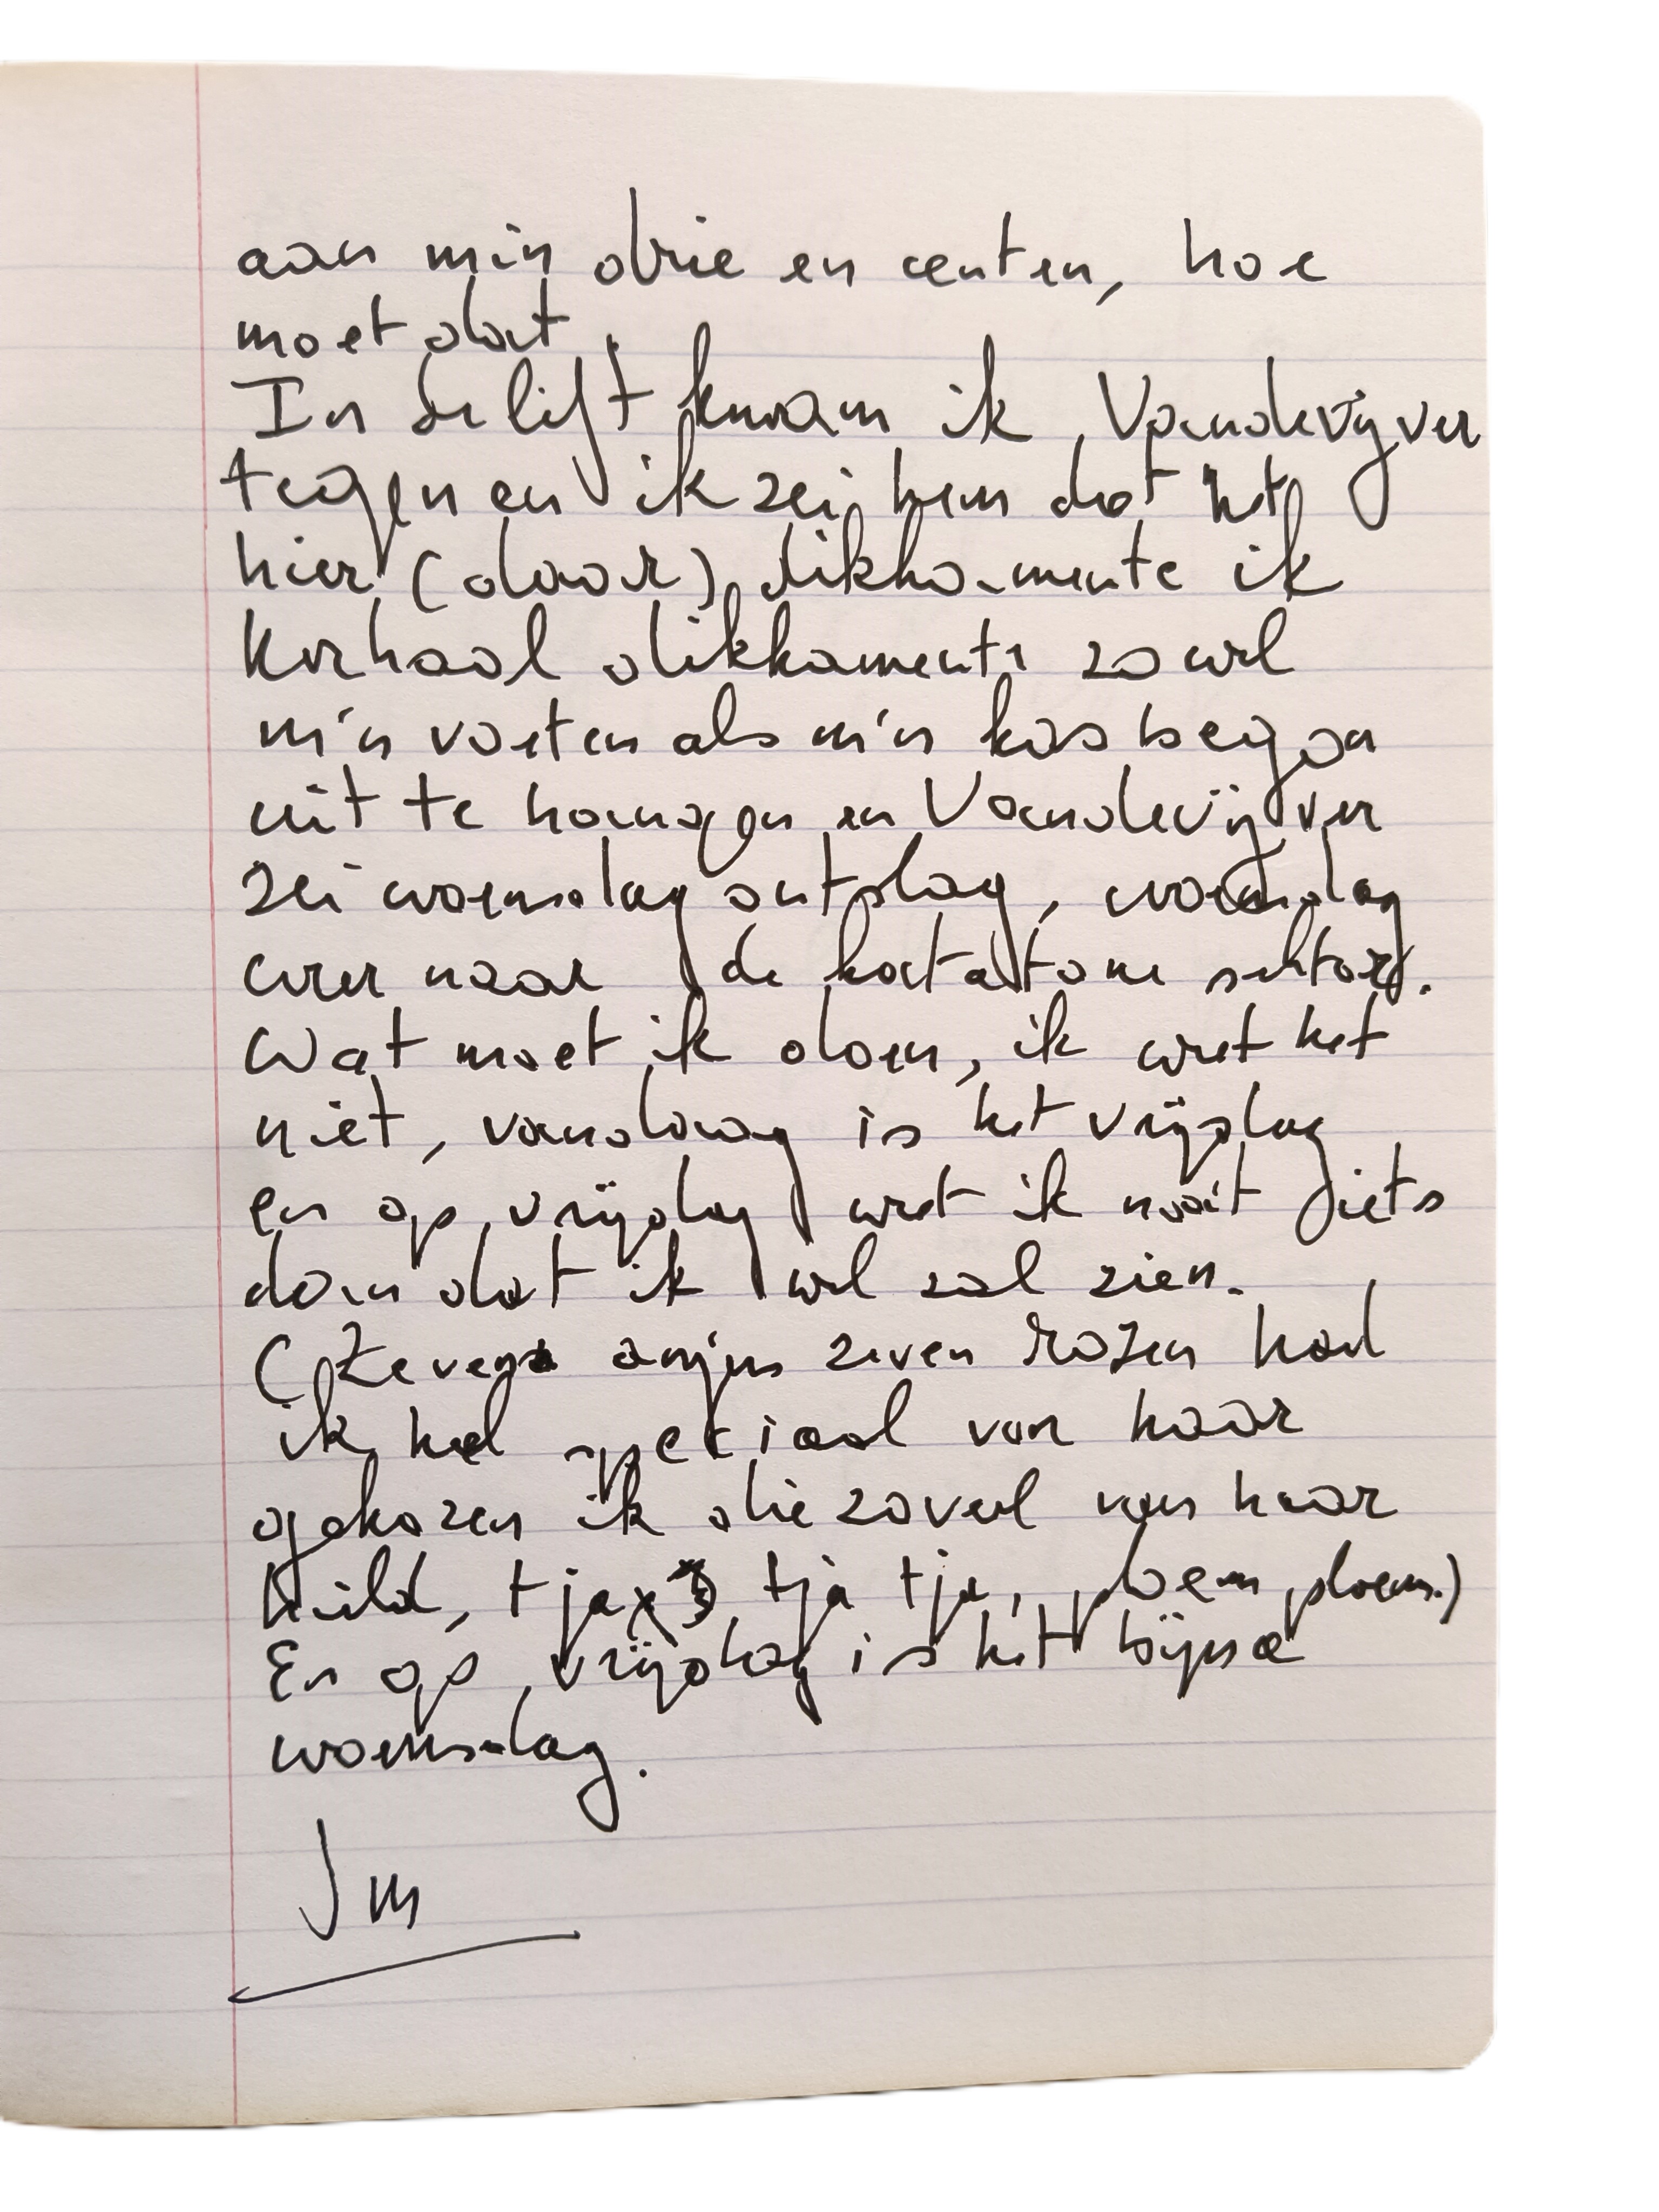 aan min drie en centen, hoe
moet dat.
In de lift kwam ik Vandevijver
tegen en ik zei hem dat het
hier (daar) dikka-mente ik
herhaal dikkamente zowel
m'n voeten als m'n kas began
uit te hangen en Vandevijver
zei woensdag ontslag, woensdag
weer naar de
Wat moet ik doen, ik weet het
niet, vandaag is het vrijdag
en op vrijdag weet ik nooit iets
dan dat ik wel zal zien.
(Zeven anjers zeven rozen had
ik heel speciaal van haar
gekozen ik die zoveel van haar
hield, tja tja tja, ploem ploem.)
En op vrijdag is het bijna
woensdag.
JM